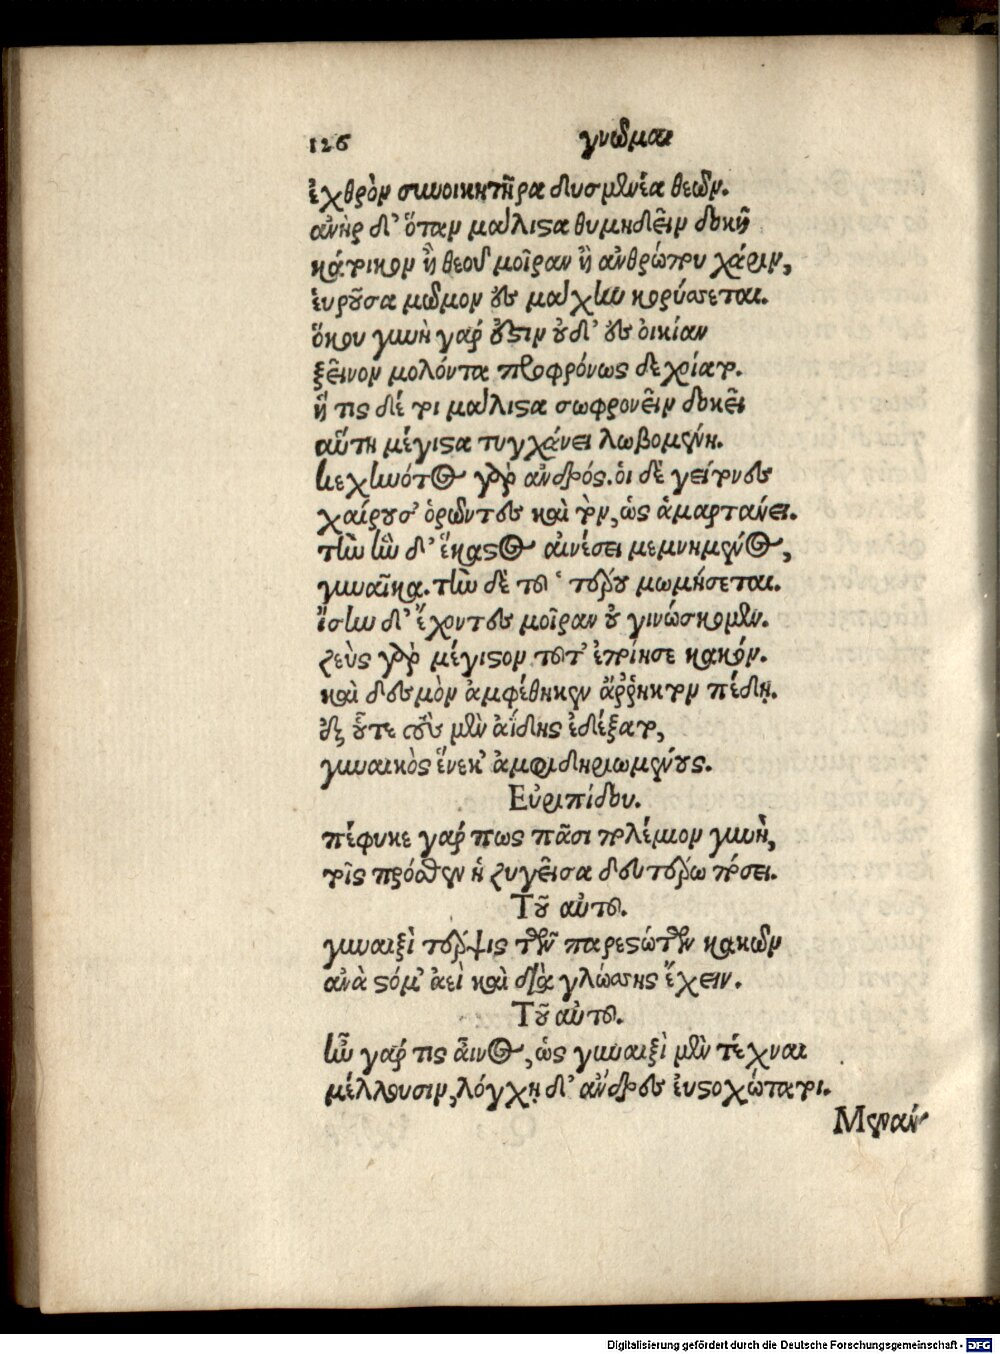 126 γνῶμαι
ἐχθρὸν συνοικητῆρα δυσμενέα θεῶν.
ἀνὴρ δ' ὅταν μάλιστα θυμηδεῖν δοκῇ
κάτοικον ἢ θεοῦ μοῖραν ἢ ἀνθρώπου χάριν,
εὑροῦσα μῶμον ἐς μάχην κορύσσεται.
ὅκου γυνὴ γάρ ἐστιν οὐδ' ἐς οἰκίαν
ξεῖνον μολόντα προφρόνως δεχοίατο.
ἥ τις δέ τοι μάλιστα σωφρονεῖν δοκεῖ
αὕτη μέγιστα τυγχάνει λωβομένη.
κεχηνότος γὰρ ἀνδρός. οἱ δὲ γείτονες
χαίρουσ' ὁρῶντες καὶ τὸν, ὡς ἁμαρτάνει.
τὴν ἣν δ' ἕκαστος αἰνέσει μεμνημένος,
γυναῖκα. τὴν δὲ τοὑτέρου μωμήσεται.
ἴσην δ' ἔχοντες μοῖραν οὐ γινώσκομεν.
ζεὺς γὰρ μέγιστον τοῦτ' ἐποίησε κακόν.
καὶ δεσμὸν ἀμφέθηκεν ἄῤῥηκτον πέδῃ.
ἐξ οὗτε τοὺς μὲν ἀΐδης ἐδέξατο,
γυναικὸς ἕνεκ' ἀμφιδηριωμένους.
Εὐριπίδου.
πέφυκε γάρ πως πᾶσι πολέμιον γυνὴ,
τοῖς πρόσθεν ἡ ζυγεῖσα δευτέρῳ πόσει.
Τοῦ αὐτοῦ.
γυναιξὶ τέρψις τῶν παρεστώτων κακῶν
ἀνὰ στόμ' ἀεὶ καὶ διὰ γλώσσης ἔχειν.
Τοῦ αὐτοῦ.
ἦν γάρ τις αἶνος, ὡς γυναιξὶ μὲν τέχναι
μέλλουσιν, λόγχῃ δ' ἄνδρες εὐστοχώτατοι.
Μενάν
Digitalisierung gefördert durch die Deutsche Forschungsgemeinschaft - DFG